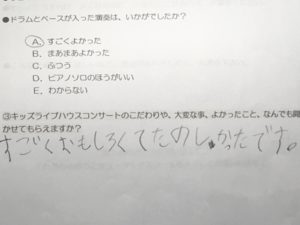 ●ドラムとベースが入った演奏は、いかがでしたか?
A、すごくよかった
B、まあまあよかった
C、ふつう
D、ピアノソロのほうがいい
E、わからない
③キッズライブハウスコンサートのこだわりや、大変な事、よかったこと、なんでも聞
かせてもらえますか?
すごくおもしろくてたのしかったです。